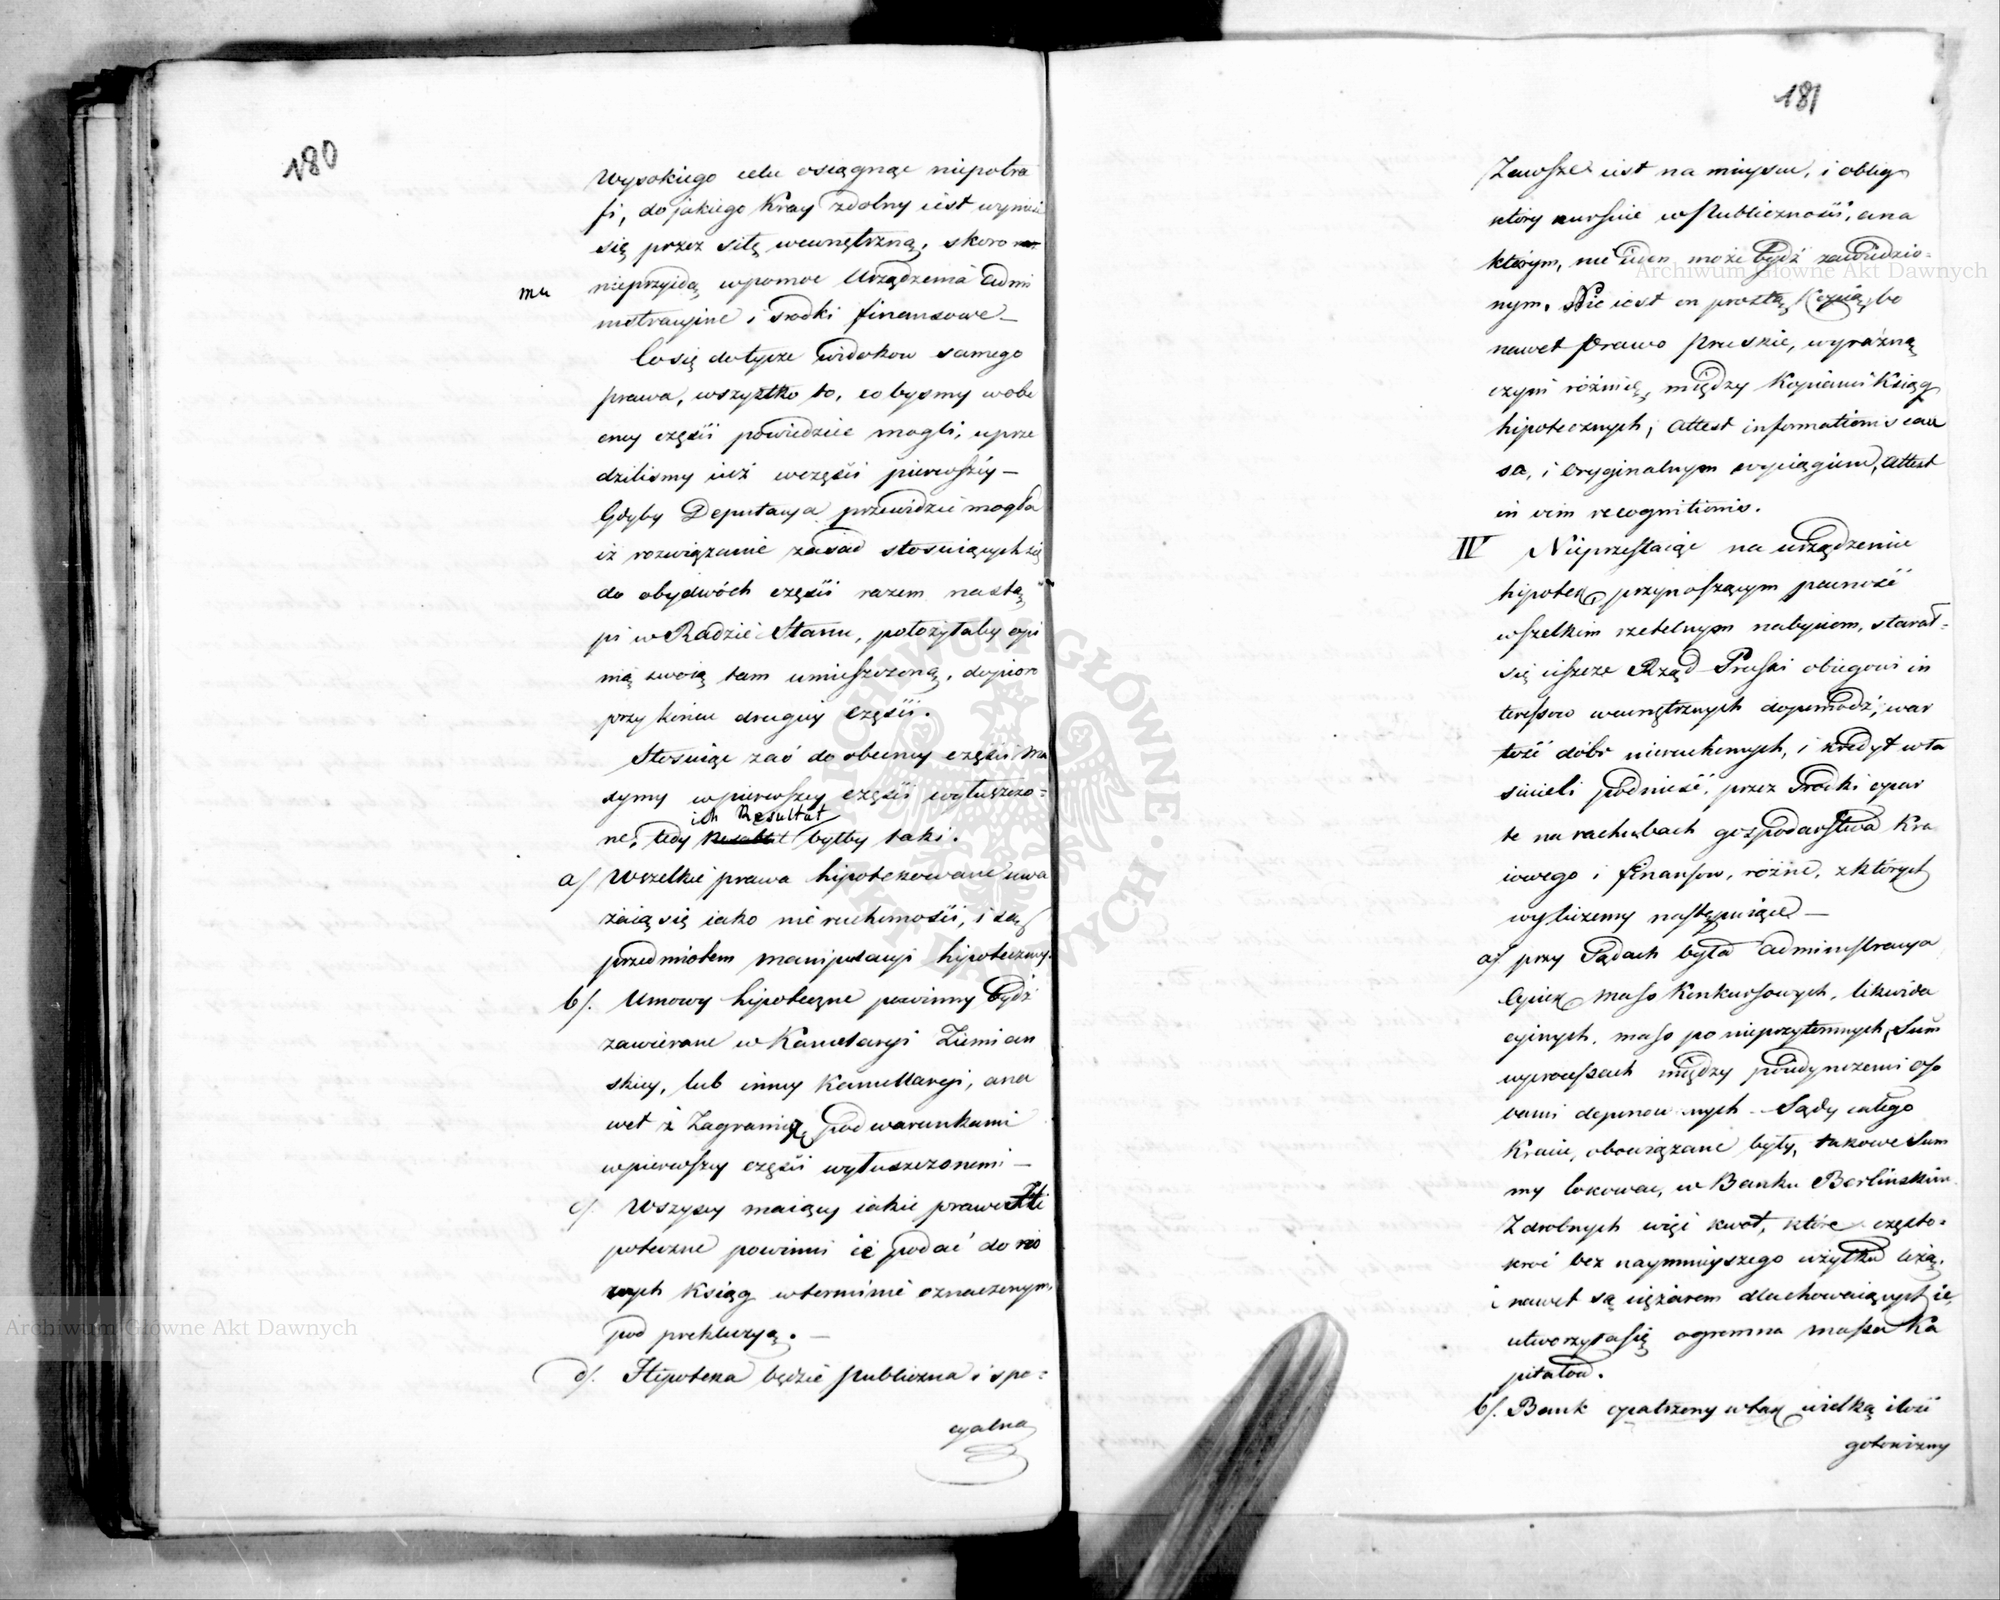 180
wysokiego celu osiągnąć niepotra
fi, do jakiego Kray zdolny iest wynieść
się przez siłę wewnętrzną, skoro
mu nieprzyidą wpomoc Urządzenia admi
nistracyine i srodki finansowe —
Co się dotycze widokow samego
prawa, wszystko to, co bysmy wobe
cney części powiedzieć mogli, uprze
dzilismy iuż wczęści pierwszey —
Gdyby Deputacya przewidzieć mogła
iż rozwiązanie zasad stosuiących się
do obydwóch części razem nastą
pi w Radzie Stanu, położyłaby opi
nią swoią tam umieszczoną, dopiero
przy końcu drugiey części.
Stosuiąc zaś do obecney części ma
xymy wpierwszey części wyłuszczo=
ne, tedy ich Resultat byłby taki.
a/ Wszelkie prawa hipotekowane uwa
żaią się iako nieruchomości, i są
przedmiotem manipulacyi hipoteczney.
b/. Umowy hipoteczne powinny bydź
zawierane w Kancelaryi Ziemian
skiey, lub inney Kancellaryi, ana
wet z Zagranicy pod warunkami
wpierwszey części wyłuszczonemi —
c/ Wszyscy maiący iakie prawo Hi
poteczne powinni ie podać do no
wych Ksiąg wterminie oznaczonym,
pod prekluzyą. —
d/. Hipoteka będzie publiczna i spe=
cyalna
181
Zawsze iest na mieyscu, i oblig
ktory kursuie w Publiczności, ana
ktorym, nie ieden może bydź zawiedzio=
nym. Nie iest on prostą Kopią, bo
nawet Prawo Pruskie, wyraźną
czyni różnicę, między Kopiami Ksiąg
hipotecznych, attest informationis cau
sa, i oryginalnym wyciągiem, attest
in vim recognitionis.
IV Nieprzestaiąc na urządzeniu
hipotek, przynoszącym pewność
wszelkim rzetelnym nabyciom, starał=
się ieszcze Rząd Pruski obiegowi in
teressow wewnętrznych dopomodź, war
tość dóbr nieruchomych, i kredyt wła
ścicieli podnieść, przez Srodki opar
te na rachubach gospodarstwa Kra
iowego i finansow, różne, z których
wyliczemy następuiące —
a/ przy Sądach była administracya
Opiek, mass Konkursowych, likwida
cyinych, mass po nieprzytomnych, Sum
wprocessach między poiedynczemi oso
bami deponowanych. Sądy całego
Kraiu, obowiązane były, takowe Sum
my lokować, w Banku Berlińskim.
Z drobnych więc kwot, które często=
kroć bez naymnieyszego użytku leżą,
i nawet są ciężarem dla chowaiących ie,
utworzyła się ogromna massa Ka
pitałow.
b/. Bank opatrzony w tak wielką ilość
gotowizny
Archiwum Główne Akt Dawnych
Archiwum Główne Akt Dawnych
ARCHIWUM GŁÓWNE AKT DAWNYCH